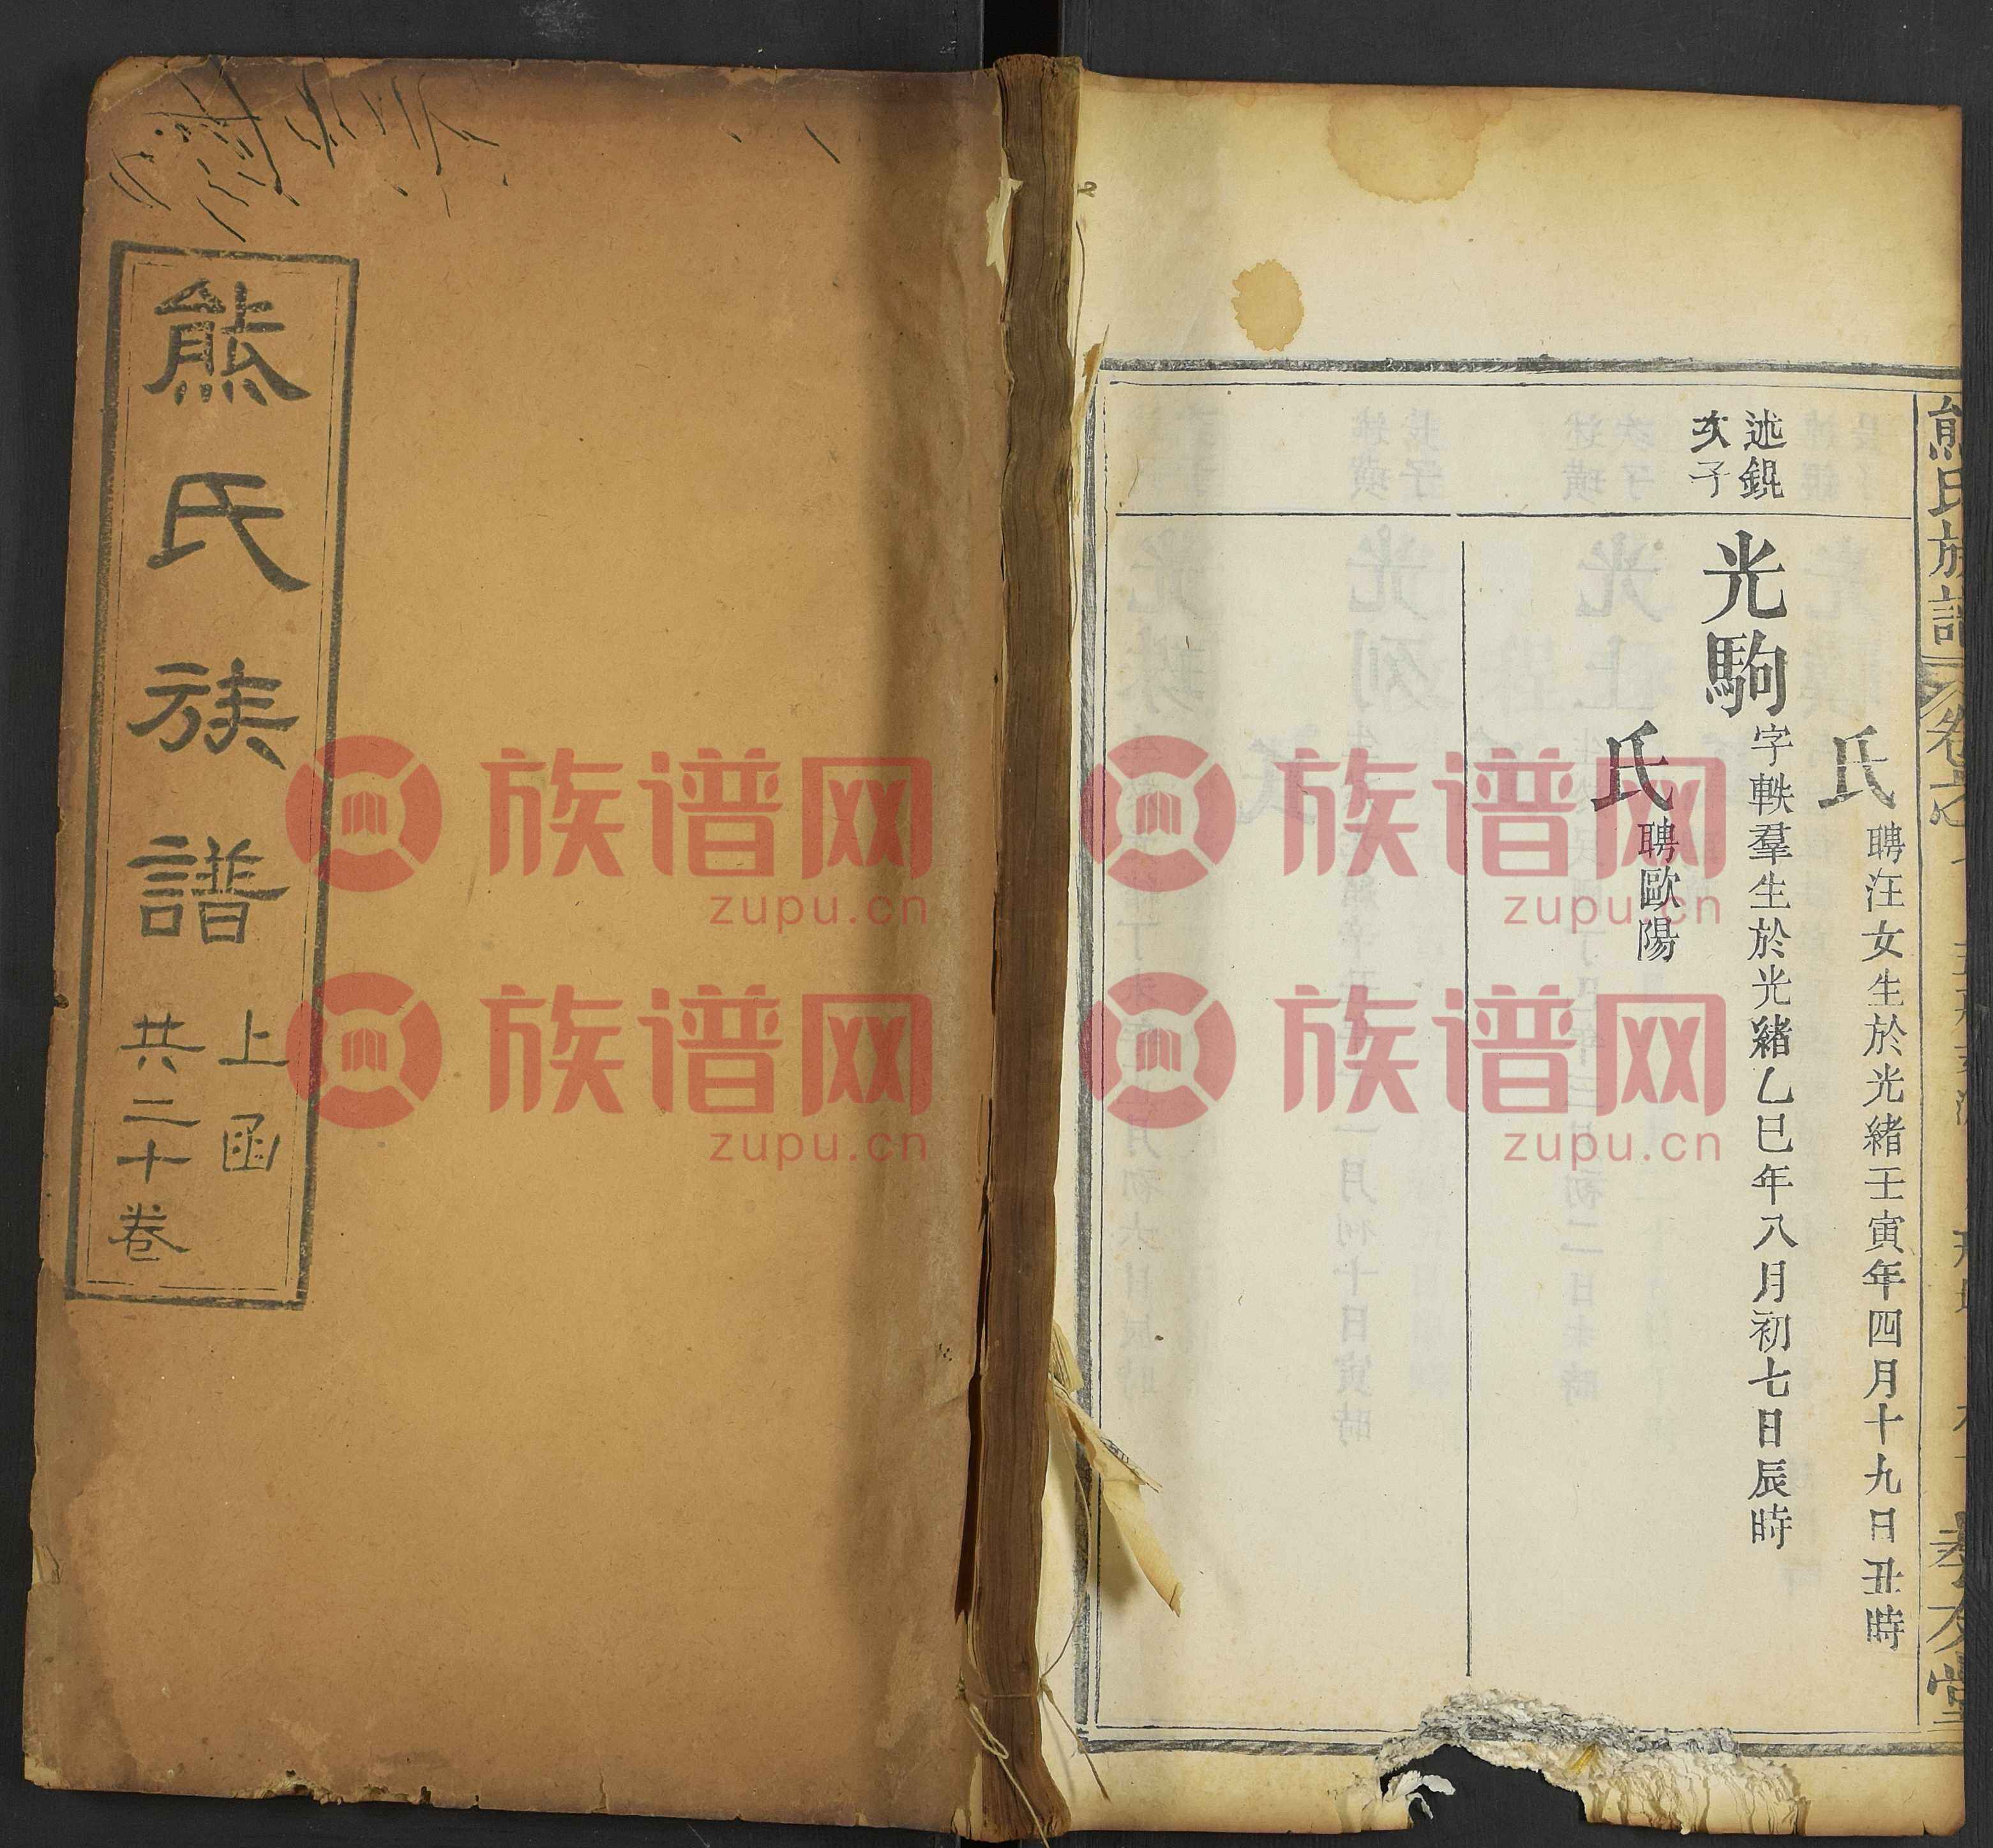 熊氏族譜
上函
共二十卷
熊氏族譜
卷之
孝友堂
氏
聘汪女生於光緒壬寅年四月十九日丑時
述錕
次子
光駒
字軼羣生於光緒乙巳年八月初七日辰時
氏
聘歐陽
族谱网
zupu.cn
族谱网
zupu.cn
族谱网
zupu.cn
族谱网
zupu.cn